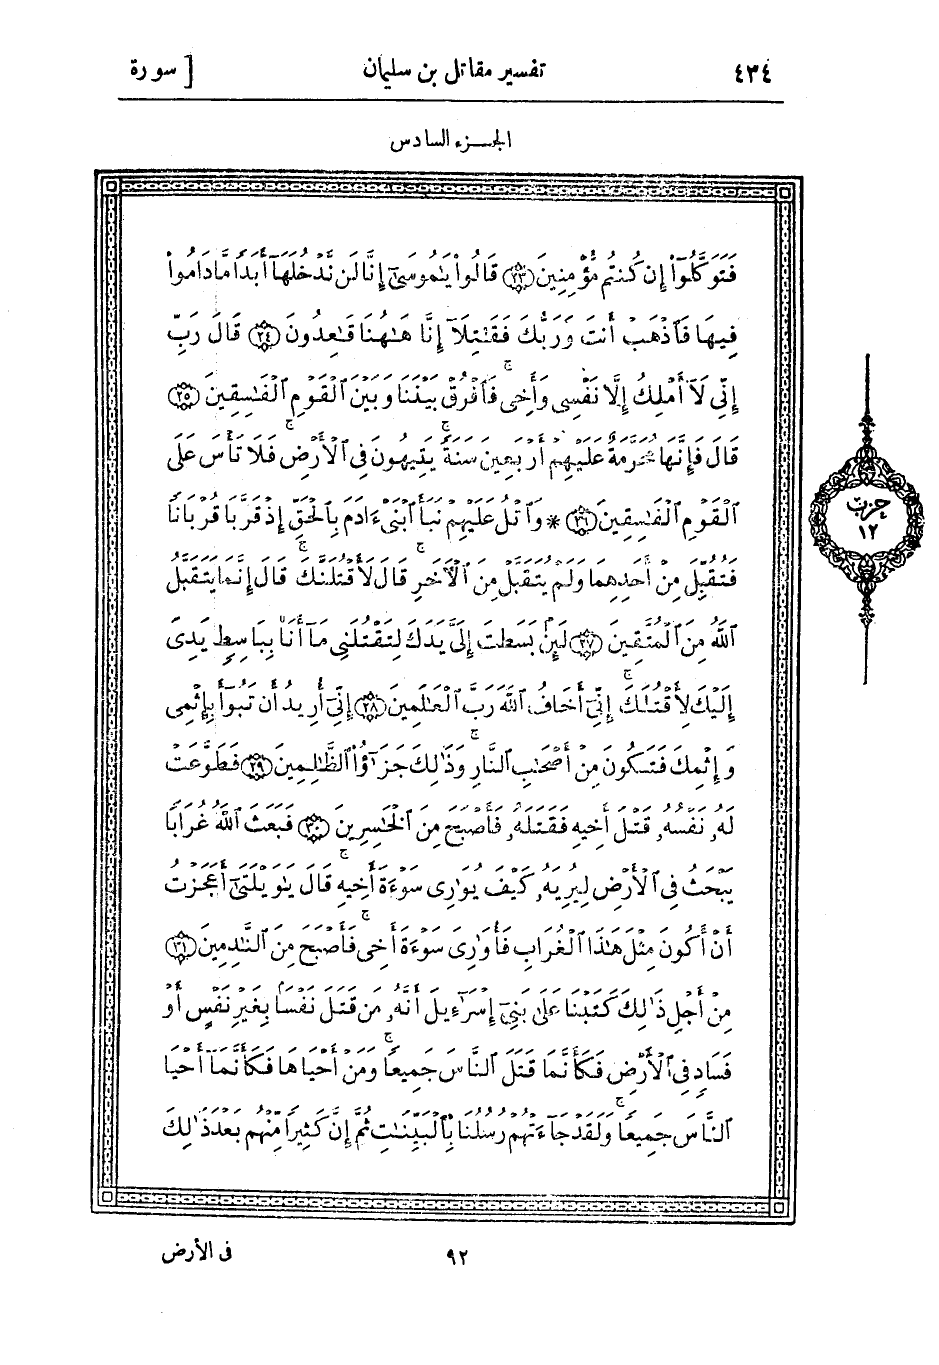 ٤٣٤ تفسير مقاتل بن سليمان [ سورة
الجـــزء السادس
فَتَوَكَّلُوٓاْ إِن كُنتُم مُّؤْمِنِينَ ﴿٢٣﴾ قَالُواْ يَٰمُوسَىٰٓ إِنَّا لَن نَّدْخُلَهَآ أَبَدًا مَّا دَامُواْ
فِيهَا فَٱذْهَبْ أَنتَ وَرَبُّكَ فَقَٰتِلَآ إِنَّا هَٰهُنَا قَٰعِدُونَ ﴿٢٤﴾ قَالَ رَبِّ
إِنِّي لَآ أَمْلِكُ إِلَّا نَفْسِى وَأَخِى ۖ فَٱفْرُقْ بَيْنَنَا وَبَيْنَ ٱلْقَوْمِ ٱلْفَٰسِقِينَ ﴿٢٥﴾
قَالَ فَإِنَّهَا مُحَرَّمَةٌ عَلَيْهِمْ أَرْبَعِينَ سَنَةً ۛ يَتِيهُونَ فِى ٱلْأَرْضِ ۚ فَلَا تَأْسَ عَلَى
ٱلْقَوْمِ ٱلْفَٰسِقِينَ ﴿٢٦﴾ * وَٱتْلُ عَلَيْهِمْ نَبَأَ ٱبْنَىْ ءَادَمَ بِٱلْحَقِّ إِذْ قَرَّبَا قُرْبَانًا
فَتُقُبِّلَ مِنْ أَحَدِهِمَا وَلَمْ يُتَقَبَّلْ مِنَ ٱلْأٓخَرِ ۖ قَالَ لَأَقْتُلَنَّكَ ۖ قَالَ إِنَّمَا يَتَقَبَّلُ
ٱللَّهُ مِنَ ٱلْمُتَّقِينَ ﴿٢٧﴾ لَئِنۢ بَسَطتَ إِلَىَّ يَدَكَ لِتَقْتُلَنِى مَآ أَنَا۠ بِبَاسِطٍ يَدِىَ
إِلَيْكَ لِأَقْتُلَكَ ۖ إِنِّىٓ أَخَافُ ٱللَّهَ رَبَّ ٱلْعَٰلَمِينَ ﴿٢٨﴾ إِنِّىٓ أُرِيدُ أَن تَبُوٓأَ بِإِثْمِى
وَإِثْمِكَ فَتَكُونَ مِنْ أَصْحَٰبِ ٱلنَّارِ ۚ وَذَٰلِكَ جَزَٰٓؤُاْ ٱلظَّٰلِمِينَ ﴿٢٩﴾ فَطَوَّعَتْ
لَهُۥ نَفْسُهُۥ قَتْلَ أَخِيهِ فَقَتَلَهُۥ فَأَصْبَحَ مِنَ ٱلْخَٰسِرِينَ ﴿٣٠﴾ فَبَعَثَ ٱللَّهُ غُرَابًا
يَبْحَثُ فِى ٱلْأَرْضِ لِيُرِيَهُۥ كَيْفَ يُوَٰرِى سَوْءَةَ أَخِيهِ ۚ قَالَ يَٰوَيْلَتَىٰٓ أَعَجَزْتُ
أَنْ أَكُونَ مِثْلَ هَٰذَا ٱلْغُرَابِ فَأُوَٰرِىَ سَوْءَةَ أَخِى ۖ فَأَصْبَحَ مِنَ ٱلنَّٰدِمِينَ ﴿٣١﴾
مِنْ أَجْلِ ذَٰلِكَ كَتَبْنَا عَلَىٰ بَنِىٓ إِسْرَٰٓءِيلَ أَنَّهُۥ مَن قَتَلَ نَفْسًۢا بِغَيْرِ نَفْسٍ أَوْ
فَسَادٍ فِى ٱلْأَرْضِ فَكَأَنَّمَا قَتَلَ ٱلنَّاسَ جَمِيعًا ۚ وَمَنْ أَحْيَاهَا فَكَأَنَّمَآ أَحْيَا
ٱلنَّاسَ جَمِيعًا ۚ وَلَقَدْ جَآءَتْهُمْ رُسُلُنَا بِٱلْبَيِّنَٰتِ ثُمَّ إِنَّ كَثِيرًا مِّنْهُم بَعْدَ ذَٰلِكَ
حزب
١٢
٩٢ فى الأرض